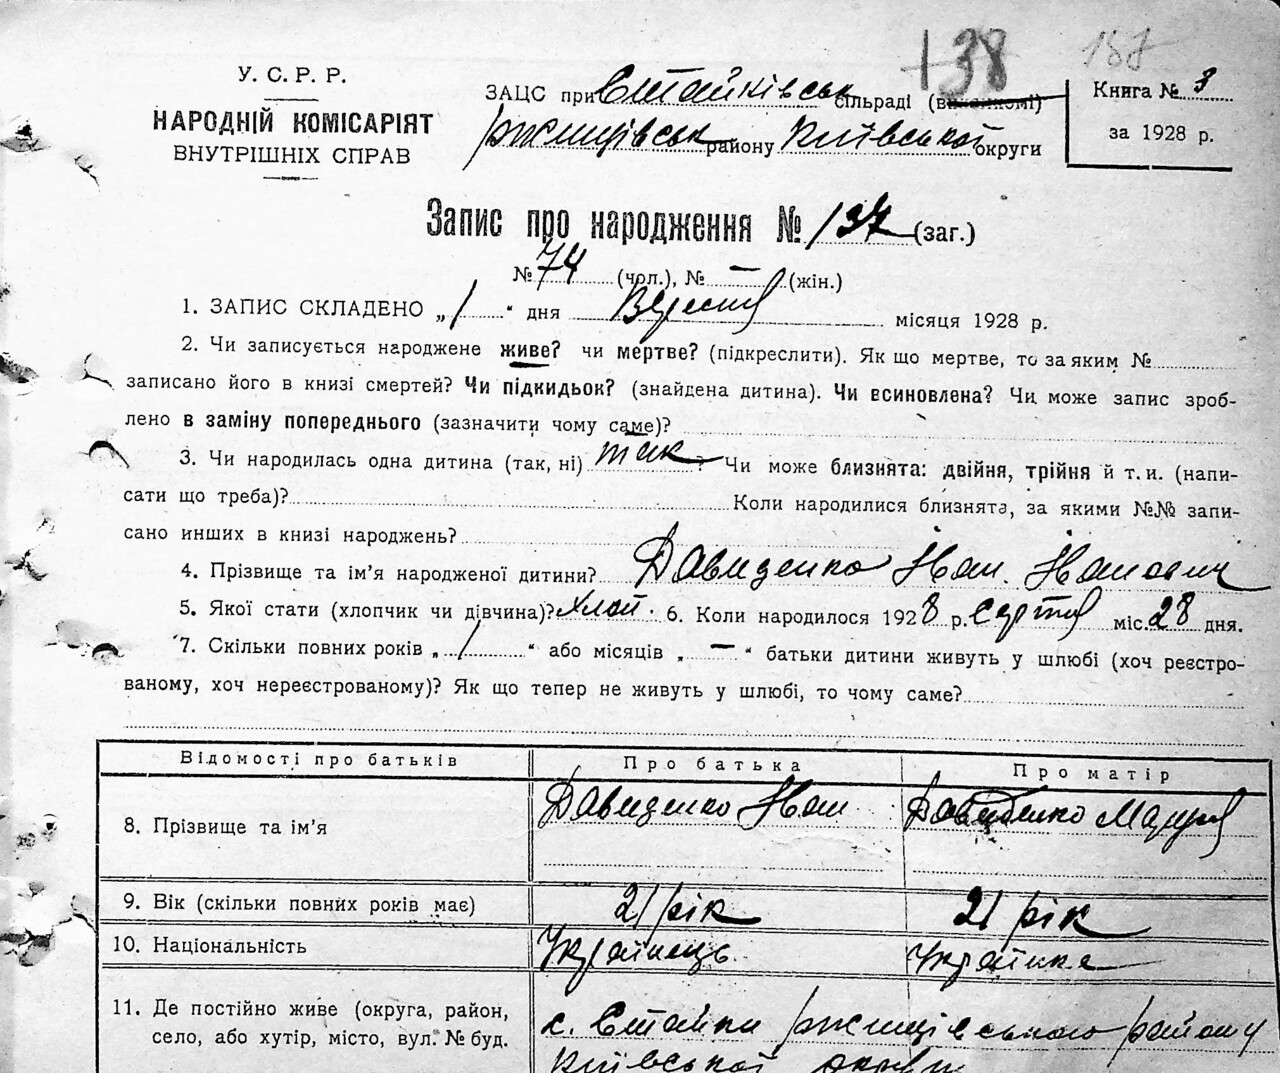 138 187
У. С. Р. Р.
НАРОДНІЙ КОМІСАРІЯТ
ВНУТРІШНІХ СПРАВ
ЗАЦС при Стайківськ сільраді (виконкомі)
Ржищівськ району Київської округи
Книга № 3
за 1928 р.
Запис про народження № 137 (заг.)
№ 74 (чол.), № — (жін.)
1. ЗАПИС СКЛАДЕНО „ 1 “ дня Вересня місяця 1928 р.
2. Чи записується народжене живе? чи мертве? (підкреслити). Як що мертве, то за яким №
записано його в книзі смертей? Чи підкидьок? (знайдена дитина). Чи всиновлена? Чи може запис зроб-
лено в заміну попереднього (зазначити чому саме)?
3. Чи народилась одна дитина (так, ні) так ? Чи може близнята: двійня, трійня й т. и. (напи-
сати що треба)? Коли народилися близнята, за якими №№ запи-
сано инших в книзі народжень?
4. Прізвище та ім’я народженої дитини? Давиденко Іван Іванович
5. Якої стати (хлопчик чи дівчина)? Хлоп. 6. Коли народилося 1928 р. серпня міс. 28 дня.
7. Скільки повних років „ 1 “ або місяців „ — “ батьки дитини живуть у шлюбі (хоч реєстро-
ваному, хоч нереєстрованому)? Як що тепер не живуть у шлюбі, то чому саме?
Відомості про батьків Про батька Про матір
8. Прізвище та ім’я Давиденко Іван Давиденко
9. Вік (скільки повних років має) 21 рік 21 рік
10. Національність Українець Українка
11. Де постійно живе (округа, район,
село, або хутір, місто, вул. № буд.
с. Стайки Ржищівського району
Київської округи